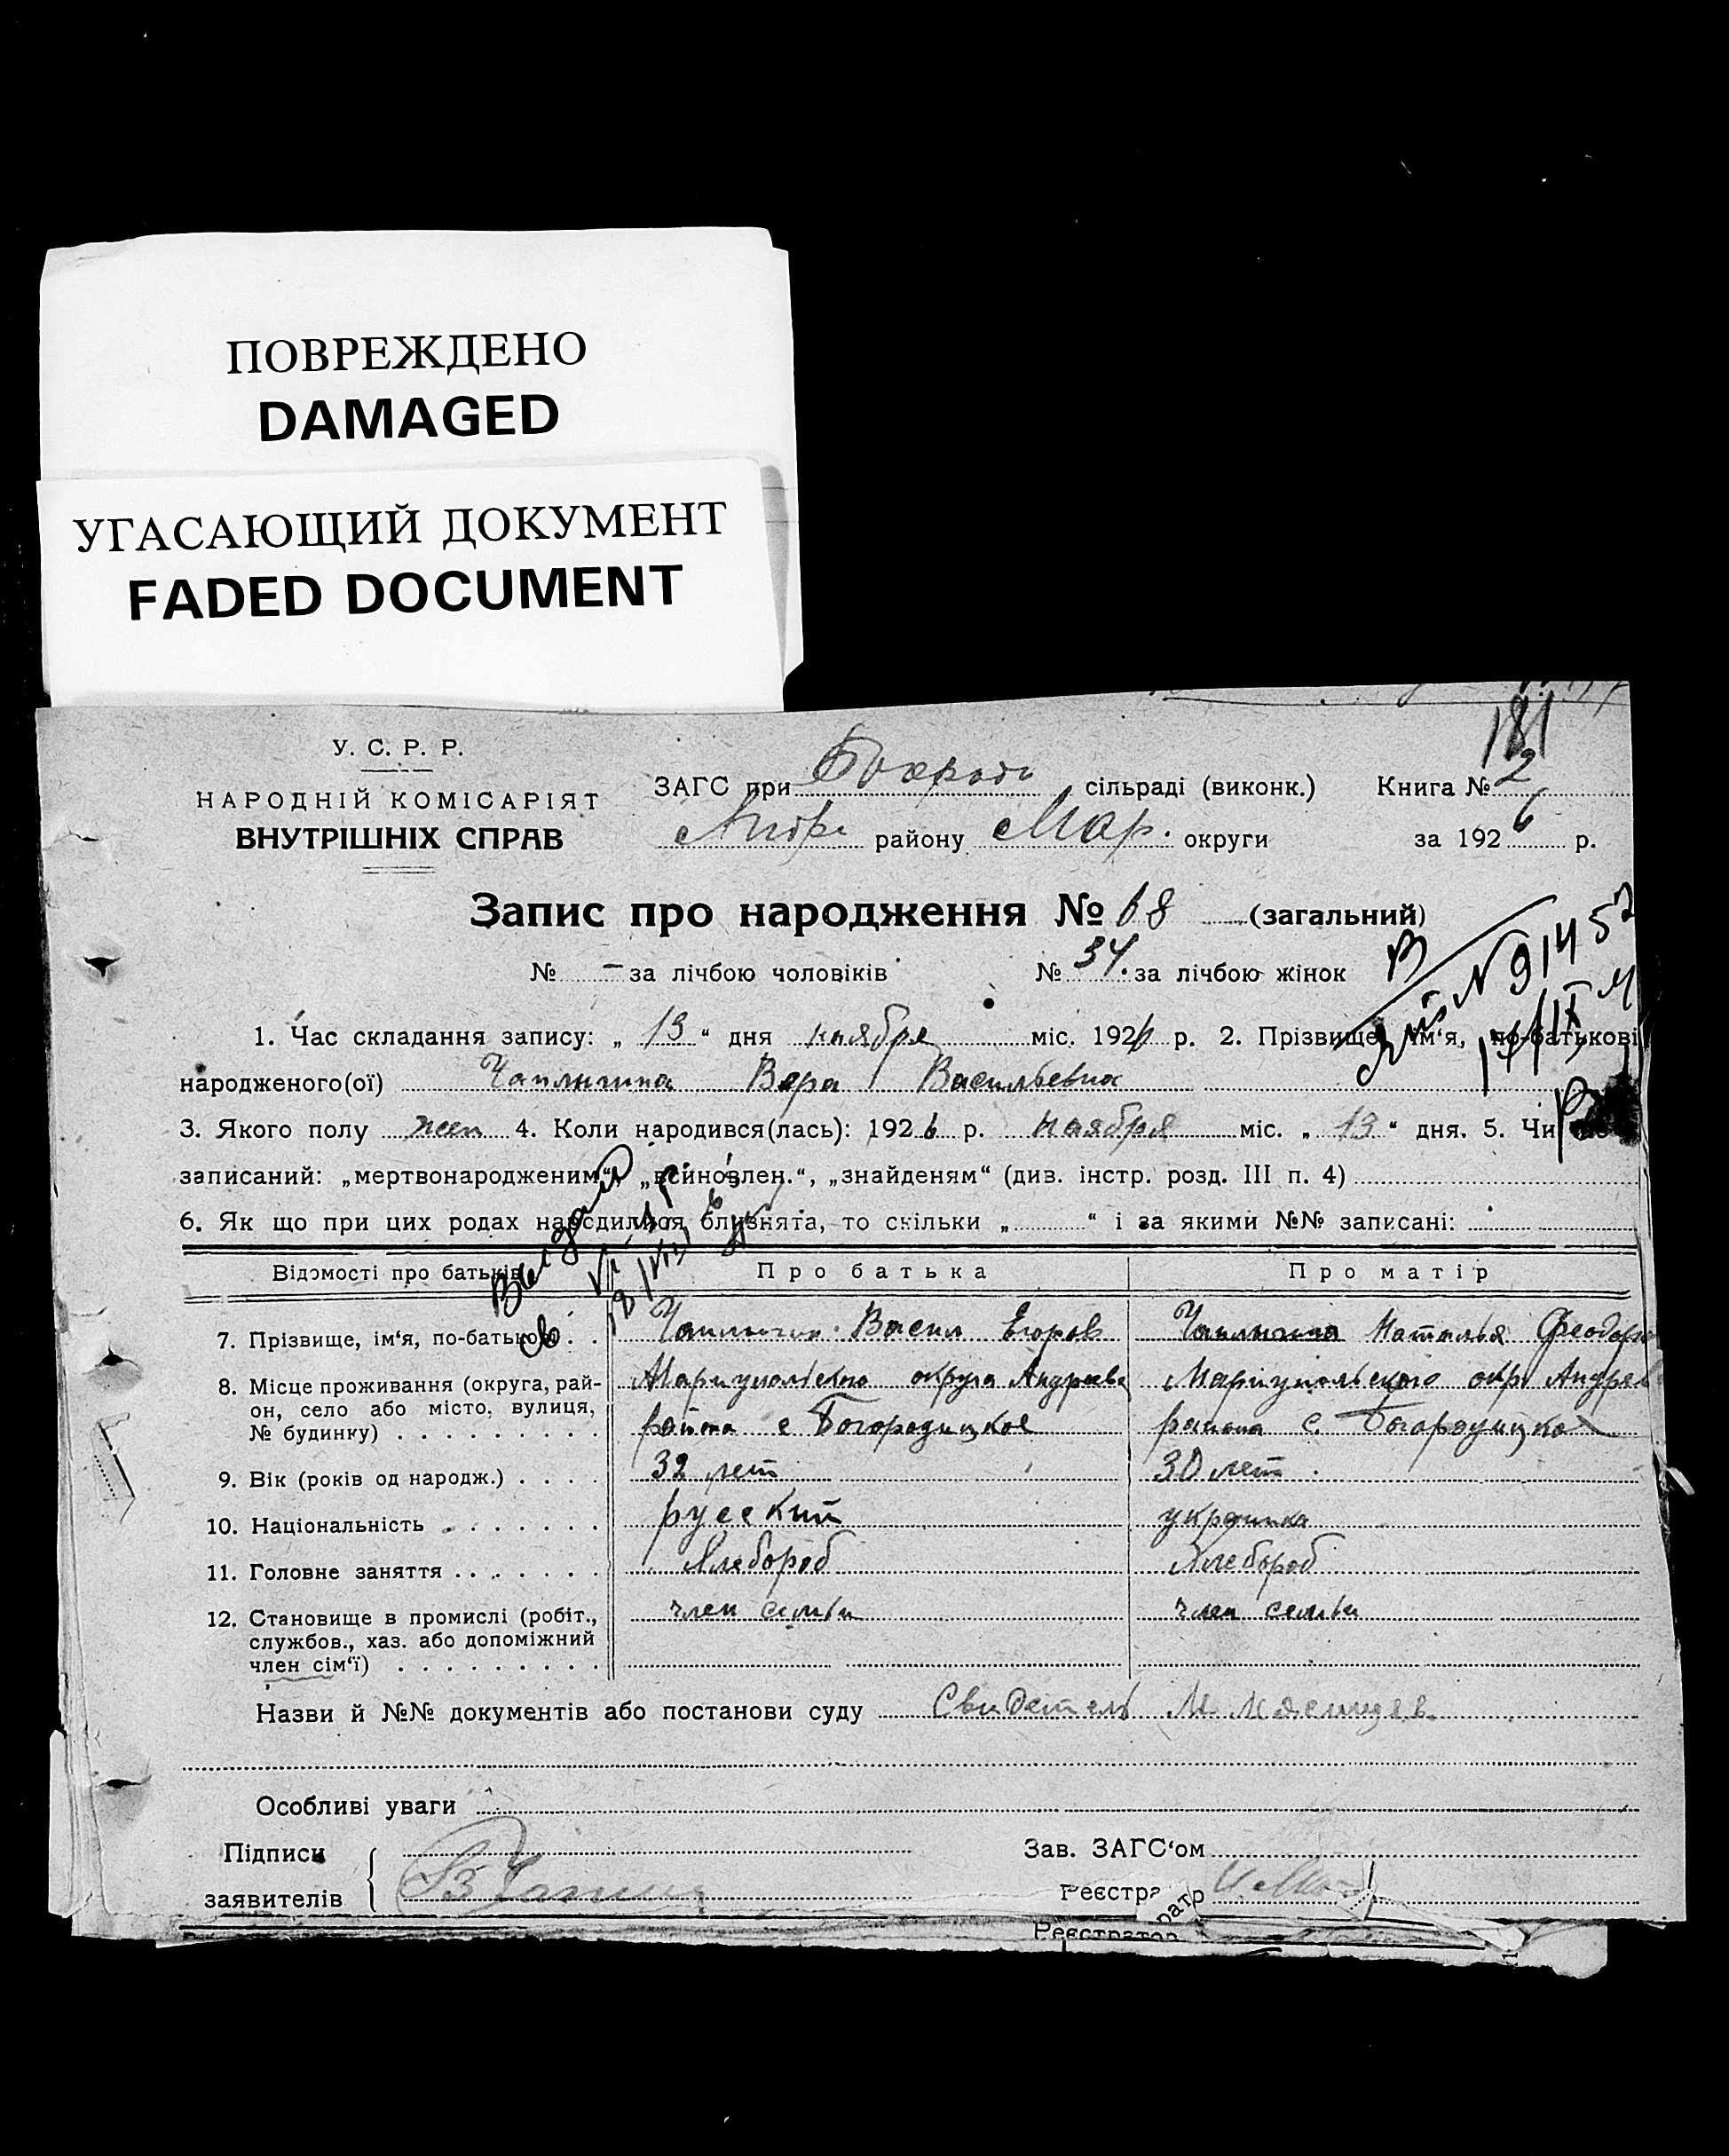 ПОВРЕЖДЕНО
DAMAGED
УГАСАЮЩИЙ ДОКУМЕНТ
FADED DOCUMENT
181
У. С. Р. Р.
НАРОДНІЙ КОМІСАРІЯТ
ВНУТРІШНІХ СПРАВ
ЗАГС при сільраді (виконк.) Книга № 2
району Мар. округи за 1926 р.
Запис про народження № 68 (загальний)
№ - за лічбою чоловіків № 34. за лічбою жінок
1. Час складання запису: „ 13 “ дня ноября міс. 1926 р. 2. Прізвище, ім‘я, по-батькові
народженого(ої) Чаплыгина Вера Васильевна
3. Якого полу жен 4. Коли народився(лась): 1926 р. ноября міс. „ 13 “ дня. 5. Чи
записаний: „мертвонародженим“, „всиновлен.“, „знайденям“ (див. інстр. розд. III п. 4)
6. Як що при цих родах народилися близнята, то скільки „ “ і за якими №№ записані:
Выдано
Відомості про батьків Про батька Про матір
7. Прізвище, ім‘я, по-батькові . . Чаплыгин Васил Егоров Чаплыгина Наталья Феодоро
8. Місце проживання (округа, рай- Мариупольского округа Андреев Мариупольского окр. Андреев
он, село або місто, вулиця,
№ будинку) . . . . . . . . . района с Богородицкое района с. Богородицкое
9. Вік (років од народж.) . . . . 32 лет 30 лет
10. Національність . . . . . . . русский украинка
11. Головне заняття . . . . . . . Хлебороб Хлебороб
12. Становище в промислі (робіт., член семьи член семьи
службов., хаз. або допоміжний
член сім‘ї) . . . . . . . . .
Назви й №№ документів або постанови суду Свидетель
Особливі уваги
Підписи Зав. ЗАГС‘ом
заявителів Реєстратор
Реєстратор